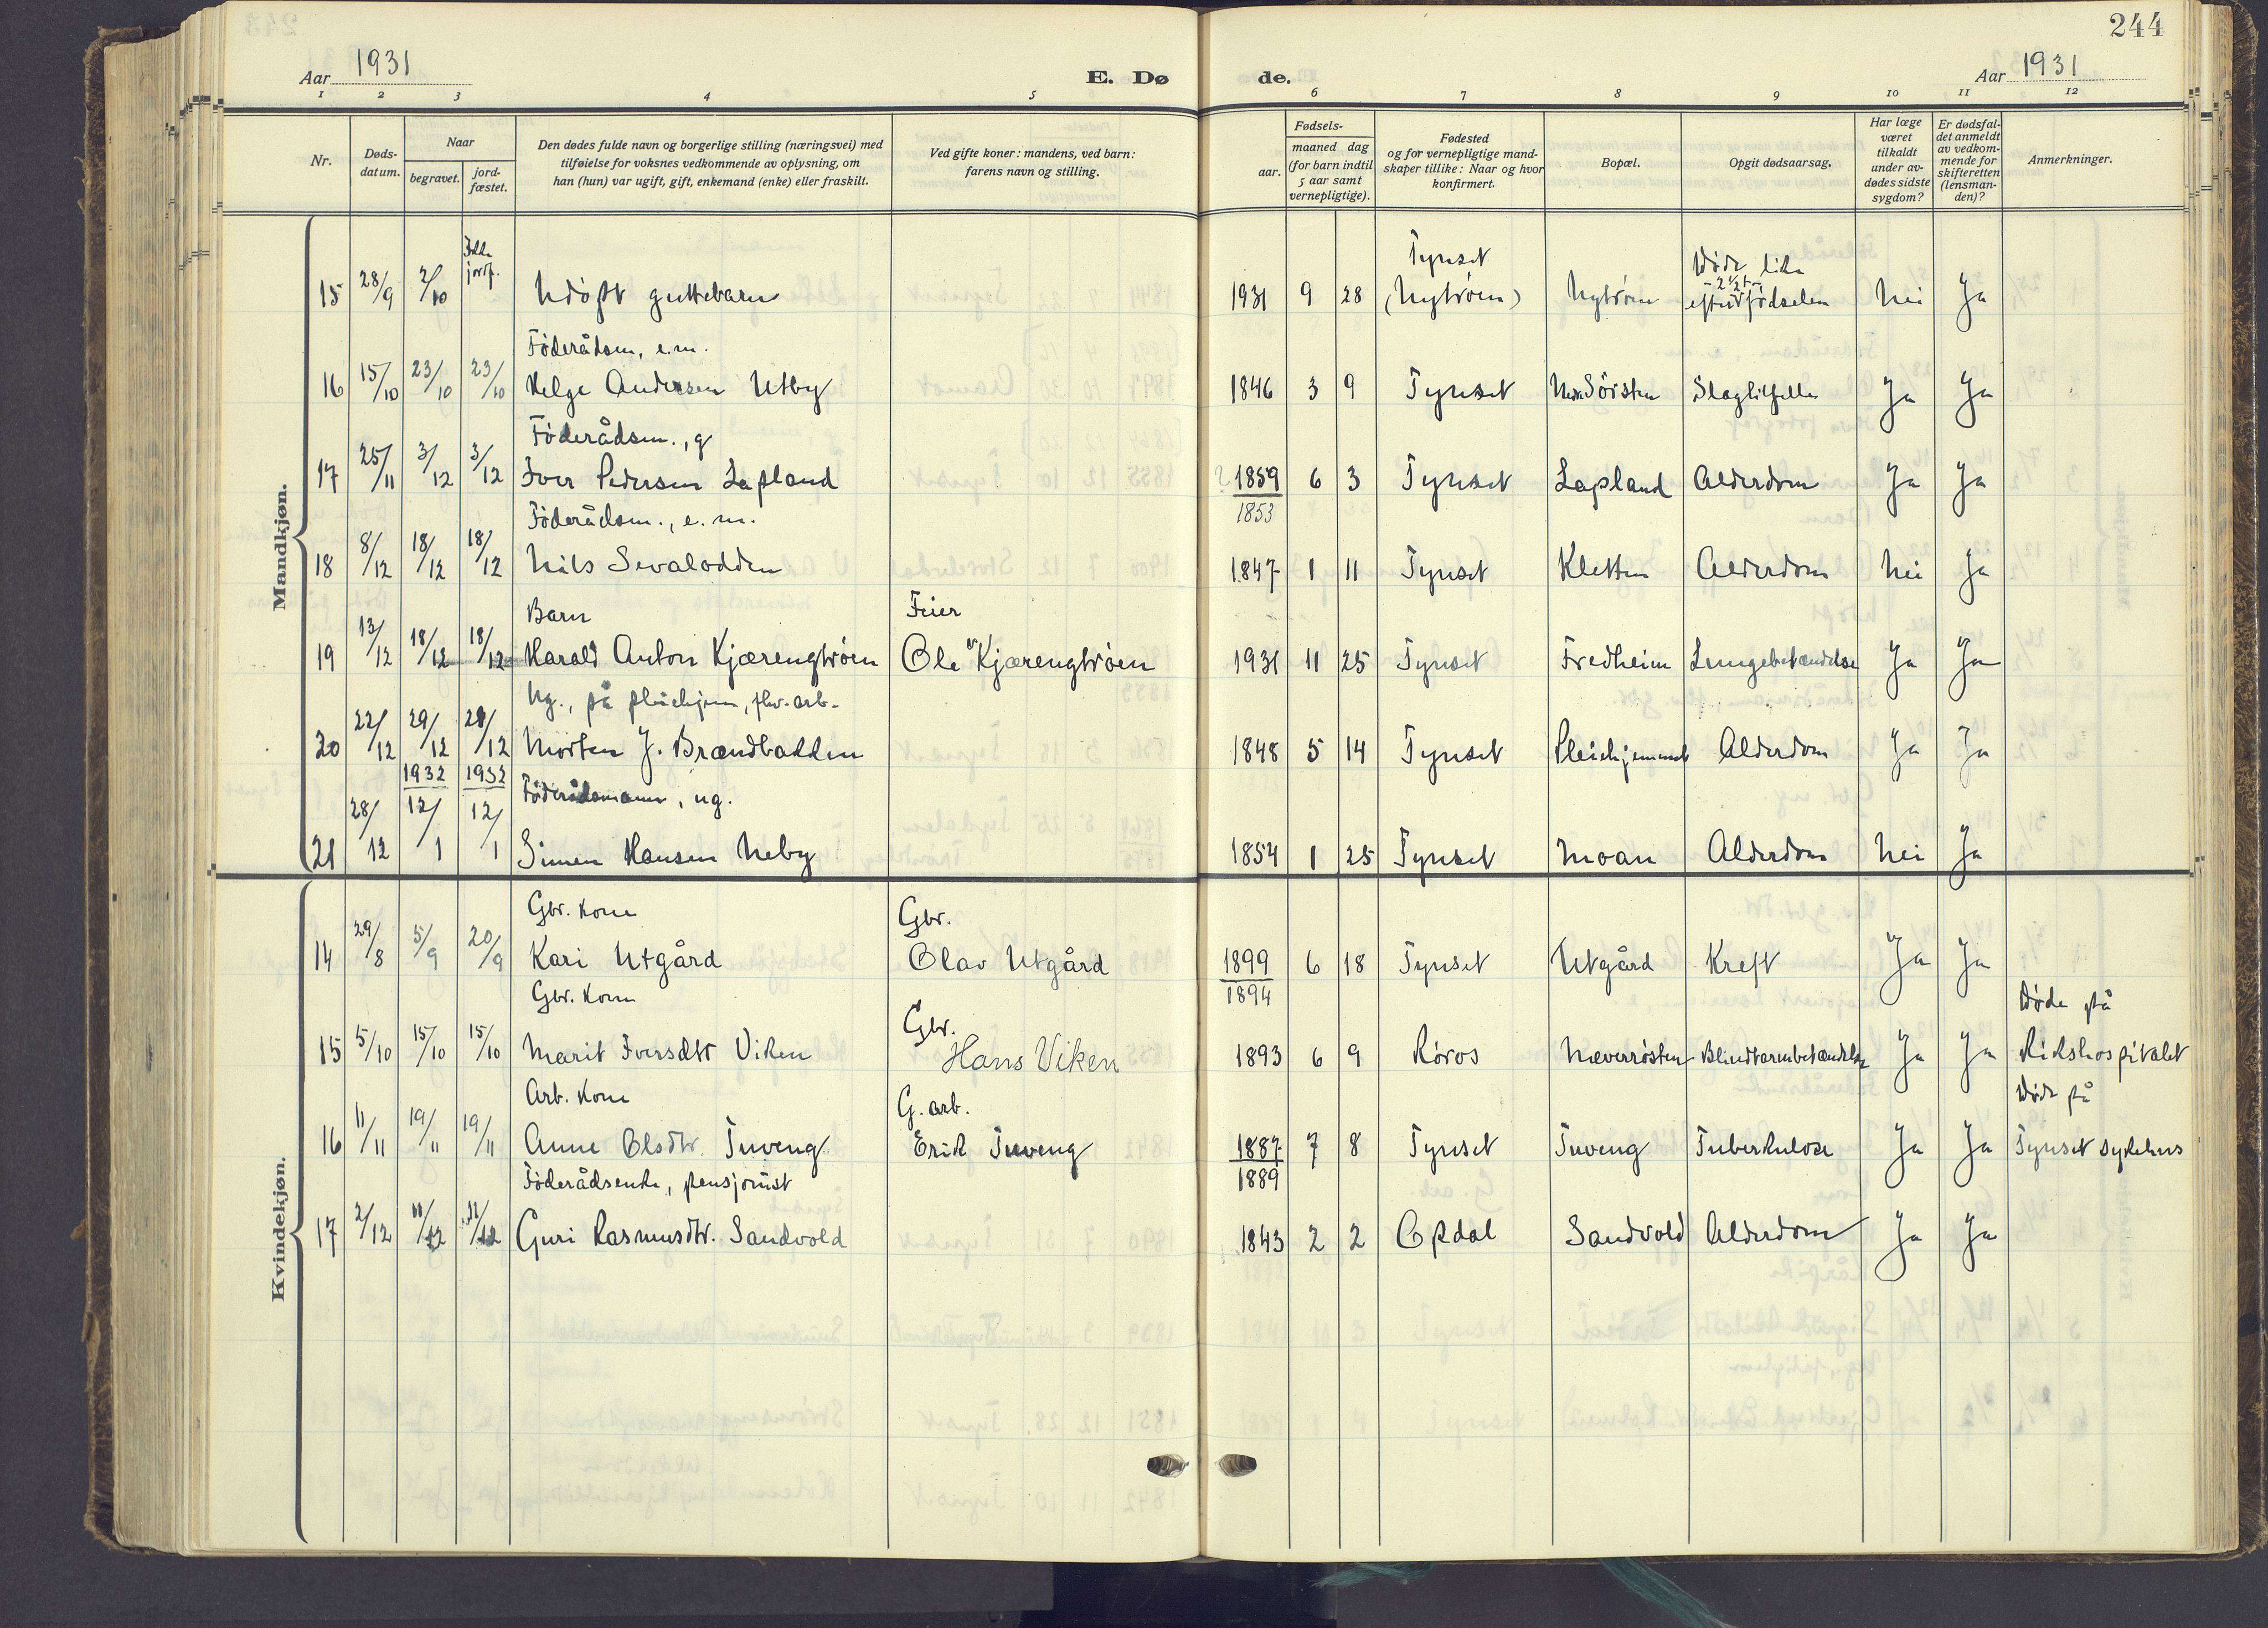 244
Aar 1931
E. Dø de.
Aar 1931
1 2 3 4 5 6 7 8 9 10 11 12
Nr.
Døds-datum.
Naar
begravet.
jord-fæstet.
Den dødes fulde navn og borgerlige stilling (næringsvei) med
tilføielse for voksnes vedkommende av oplysning, om
han (hun) var ugift, gift, enkemand (enke) eller fraskilt.
Ved gifte koner: mandens, ved barn:
farens navn og stilling.
Fødsels-
aar.
maaned dag
(for barn indtil
5 aar samt
vernepligtige).
Fødested
og for vernepligtige mand-
skaper tillike: Naar og hvor
konfirmert.
Bopæl.
Opgit dødsaarsag.
Har læge
været
tilkaldt
under av-
dødes sidste
sygdom?
Er dødsfal-
det anmeldt
av vedkom-
mende for
skifteretten
(lensman-
den)?
Anmerkninger.
Mandkjøn.
Ikke jordf. Tynset Døde like
15 28/9 2/10 Udøpt guttebarn 1931 9 28 (Nytrøen) Nytrøen - 2 1/2 t - efter fødselen Nei Ja
Føderådsm., e.m.
16 15/10 23/10 23/10 Helge Andersen Utby 1846 3 9 Tynset Sørsten Slagtilfelle Ja Ja
Føderådsm., g
17 25/11 3/12 3/12 Iver Pedersen Lapland ? 1859 6 3 Tynset Lapland Alderdom Ja Ja
1853
Føderådsm., e.m.
18 8/12 18/12 18/12 Nils Sevalodden 1847 1 11 Tynset Kletten Alderdom Nei Ja
Barn Feier
19 13/12 18/12 18/12 Harald Anton Kjærengtrøen Ole Kjærengtrøen 1931 11 25 Tynset Fredheim Lungebetændelse Ja Ja
Ug., på pleiehjem, fhv. arb.
20 22/12 29/12 29/12 Morten J. Brændbakken 1848 5 14 Tynset Pleiehjemmet Alderdom Ja Ja
1932 1932 Føderådsmann, ug.
21 28/12 12/1 12/1 Simen Hansen Neby 1854 1 25 Tynset Moan Alderdom Nei Ja
Kvindekjøn.
Gbr. kone Gbr.
14 29/8 5/9 20/9 Kari Utgård Olav Utgård 1899 6 18 Tynset Utgård Kreft Ja Ja
1894
Gbr. kone Gbr. Døde på
15 5/10 15/10 15/10 Marit Iversdtr Viken Hans Viken 1893 6 9 Røros Næverrøsten Blindtarmbetændelse Ja Ja Rikshospitalet
Arb. kone G. arb. Døde på
16 11/11 19/11 19/11 Anne Olsdtr. Tuveng Erik Tuveng 1887 7 8 Tynset Tuveng Tuberkulose Ja Ja Tynset sykehus
1889
Føderådsenke, pensjonist
17 2/12 11/12 11/12 Guri Rasmusdtr. Sandvold 1843 2 2 Opdal Sandvold Alderdom Ja Ja